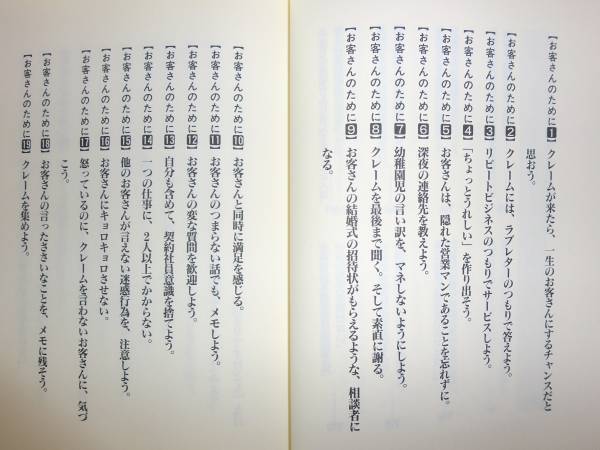 【お客さんのために1】クレームが来たら、一生のお客さんにするチャンスだと
思おう。
【お客さんのために2】クレームには、ラブレターのつもりで答えよう。
【お客さんのために3】リピートビジネスのつもりでサービスしよう。
【お客さんのために4】「ちょっとうれしい」を作り出そう。
【お客さんのために5】お客さんは、隠れた営業マンであることを忘れずに。
【お客さんのために6】深夜の連絡先を教えよう。
【お客さんのために7】幼稚園児の言い訳を、マネしないようにしよう。
【お客さんのために8】クレームを最後まで聞く。そして素直に謝る。
【お客さんのために9】お客さんの結婚式の招待状がもらえるような、相談者に
なる。
【お客さんのために10】お客さんと同時に満足を感じる。
【お客さんのために11】お客さんのつまらない話でも、メモしよう。
【お客さんのために12】お客さんの変な質問を歓迎しよう。
【お客さんのために13】自分も含めて、契約社員意識を捨てよう。
【お客さんのために14】一つの仕事に、2人以上でかからない。
【お客さんのために15】他のお客さんが言えない迷惑行為を、注意しよう。
【お客さんのために16】お客さんにキョロキョロさせない。
【お客さんのために17】怒っているのに、クレームを言わないお客さんに、気づ
こう。
【お客さんのために18】お客さんの言ったささいなことを、メモに残そう。
【お客さんのために19】クレームを集めよう。